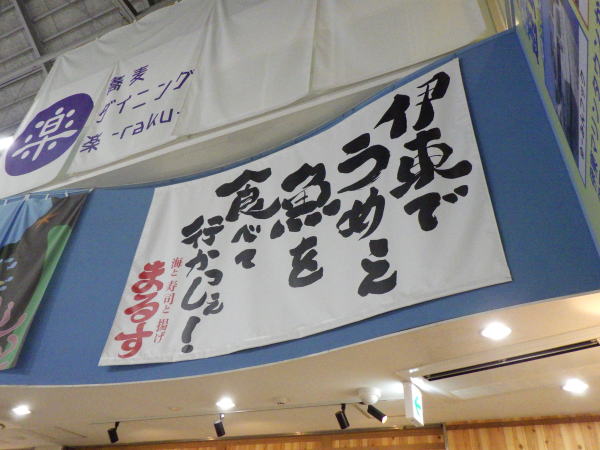 楽
蕎麦
ダイニング
楽 -raku-
伊東で
うめえ
魚を
食べて
行かっしぇ!
海と寿司と揚げ
まるす